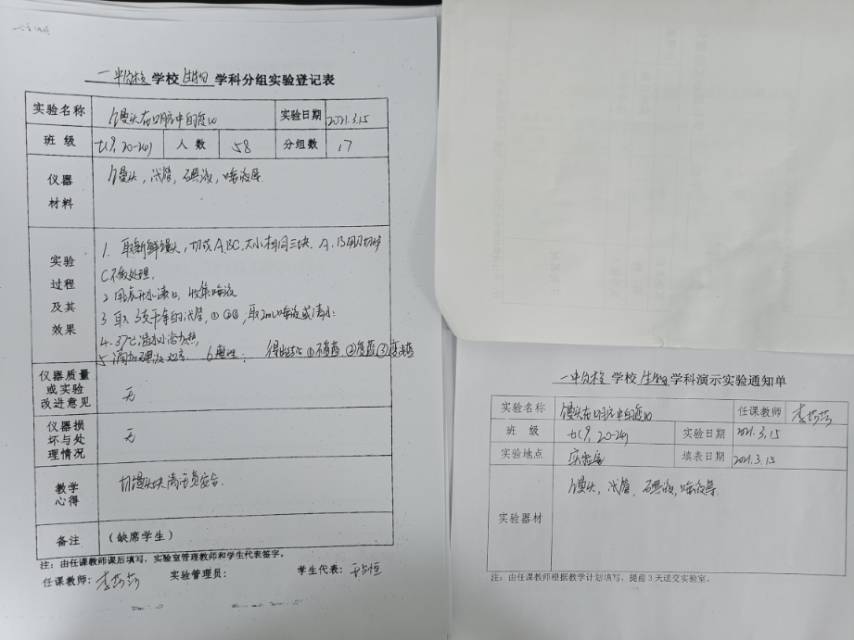 一中分校 学校 生物 学科分组实验登记表
实验名称 馒头在口腔中的变化 实验日期 2021.3.15
班 级 七(9, 20-24) 人 数 58 分组数 17
仪器材料 馒头, 试管, 碘液, 唾液等
实验过程及其效果
1. 取新鲜馒头, 切成A.B.C.大小相同三块. A. B用刀切碎
C不做处理.
2 用凉开水漱口, 收集唾液
3 取3支干净的试管, ① ②③, 取2ml唾液或清水:
4. 37℃温水水浴加热
5 滴加碘液 观察. 6 ①不变蓝 ②变蓝 ③
仪器质量或实验改进意见 无
仪器损坏与处理情况 无
教学心得 切馒头块需注意安全.
备注 (缺席学生)
注: 由任课教师课后填写, 实验室管理教师和学生代表签字。
任课教师: 李莎莎 实验管理员: 学生代表:
一中分校 学校 生物 学科演示实验通知单
实验名称 馒头在口腔中的变化 任课教师 李莎莎
班 级 七(9, 20-24) 实验日期 2021.3.15
实验地点 实验室 填表日期 2021.3.15
实验器材 馒头, 试管, 碘液, 唾液等
注: 由任课教师根据教学计划填写, 提前3天送交实验室。